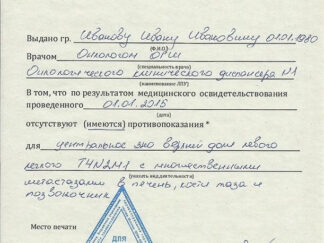 Выдано гр. Иванову Ивану Ивановичу 01.01.1980
(Ф.И.О.)
Врачом Онкологом ОРШ
(специальность врача)
Онкологического клинического диспансера №1
(наименование ЛПУ)
В том, что по результатом медицинского освидетельствования
проведенного 01.01.2015
(дата)
отсутствуют (имеются) противопоказания *
для центральное зно верхней доли левого
легкого T4N2M1 с множественными
(указать вид деятельности)
метастазами в печень, кости таза и
позвоночник
Место печати
ДЛЯ